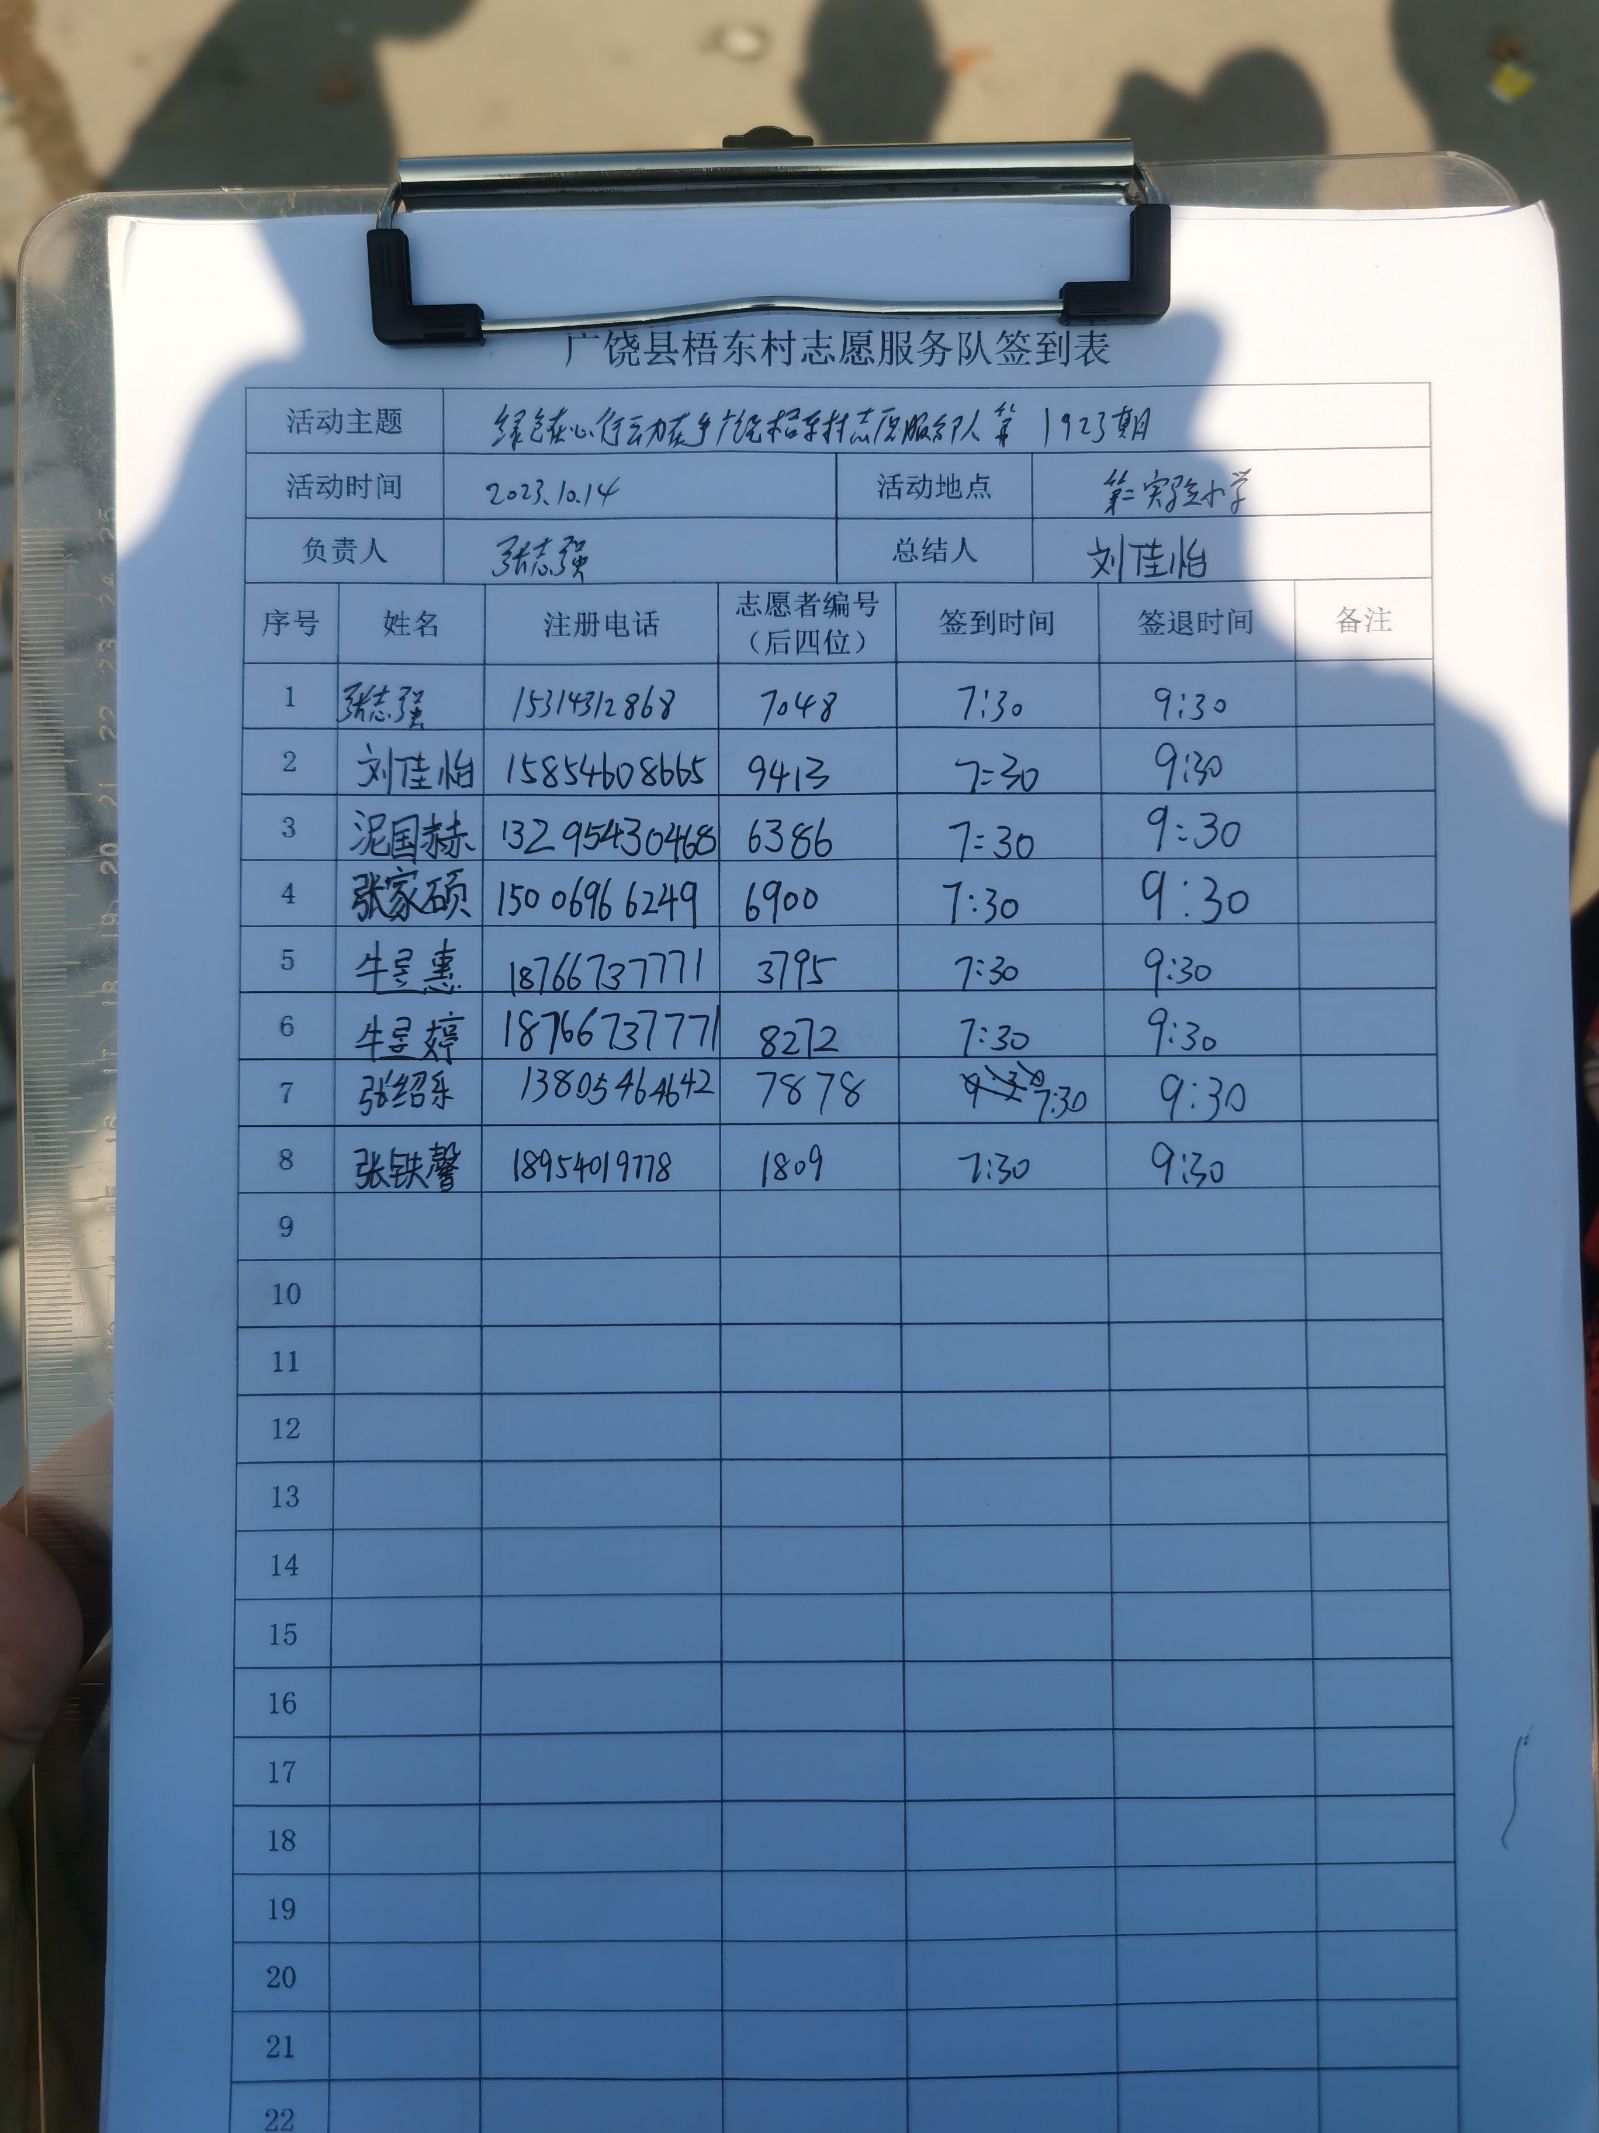 广饶县梧东村志愿服务队签到表
活动主题 绿色在心行动在手广饶梧东村志愿服务队第1923期
活动时间 2023.10.14 活动地点 第二实验小学
负责人 张志强 总结人 刘佳怡
序号 姓名 注册电话 志愿者编号（后四位） 签到时间 签退时间 备注
1 张志强 15314312868 7048 7:30 9:30
2 刘佳怡 15854608665 9413 7:30 9:30
3 泥国赫 13295430468 6386 7:30 9:30
4 张家硕 15006966249 6900 7:30 9:30
5 牛昱惠 18766737771 3795 7:30 9:30
6 牛昱婷 18766737771 8272 7:30 9:30
7 张绍乐 13805464642 7878 7:30 9:30
8 张轶馨 18954019778 1809 7:30 9:30
9
10
11
12
13
14
15
16
17
18
19
20
21
22